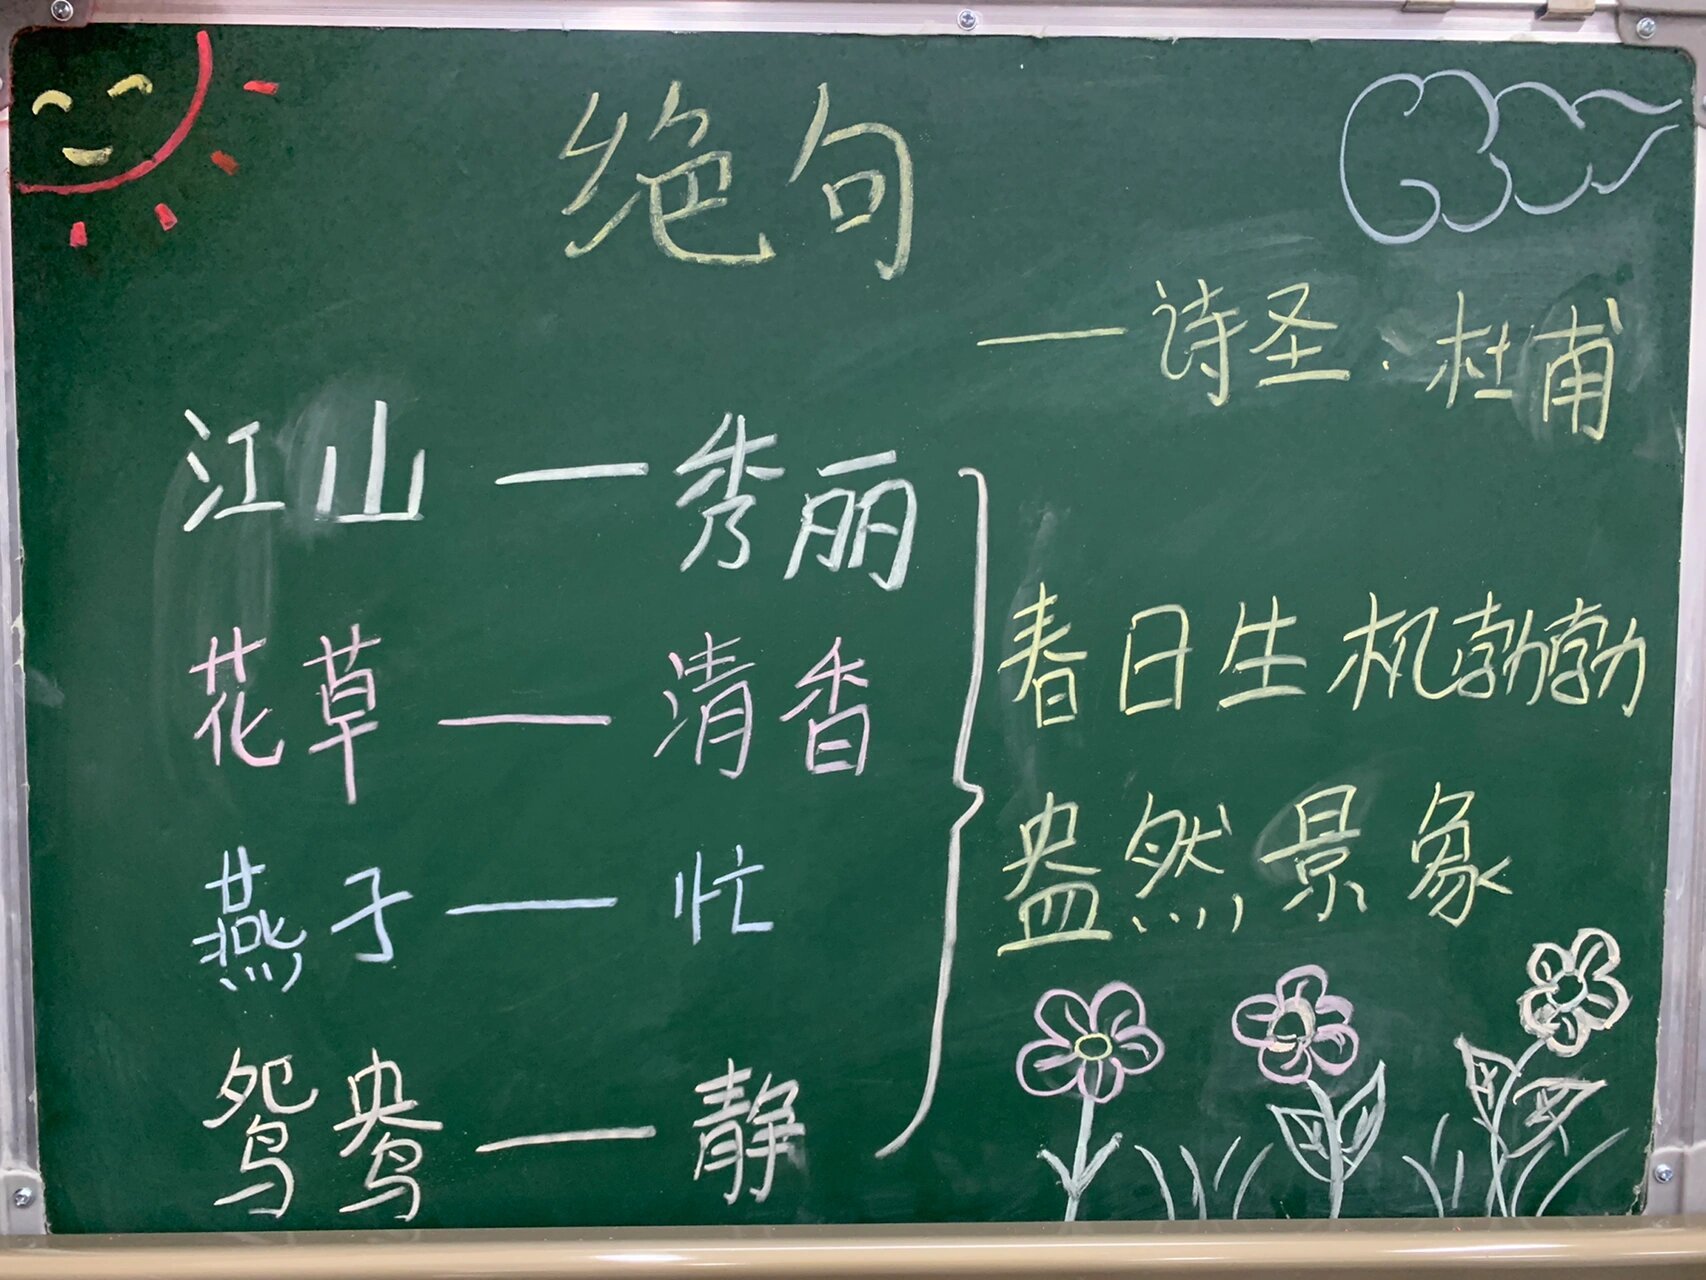 绝句
——诗圣·杜甫
江山——秀丽
花草——清香
燕子——忙
鸳鸯——静
春日生机勃勃
盎然景象